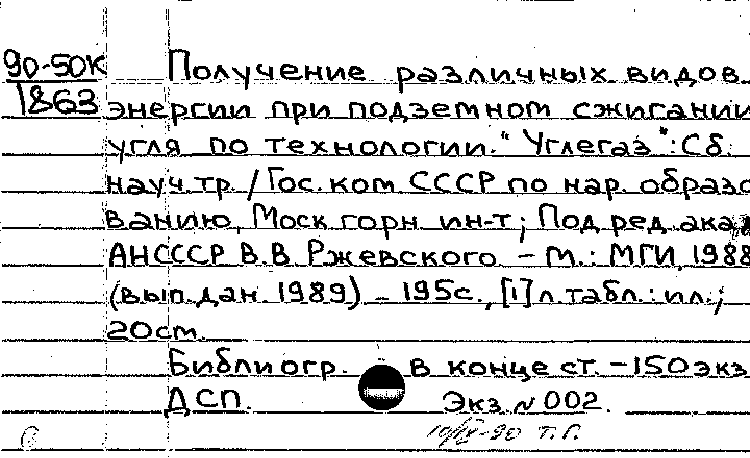 90-50К Получение различных видов
1863 энергии при подземном сжигании
угля по технологии "Углегаз": Сб.
науч.тр. / Гос. ком СССР по нар. образо
ванию, Моск. горн. ин-т; Под ред. акад
АНСССР В.В. Ржевского. - М.: МГИ, 1988
(вып. дан. 1989) - 195с., [1] л. табл.: ил.;
20см.
Библиогр. в конце ст. - 150 экз
ДСП. Экз. № 002.
Т.Г.